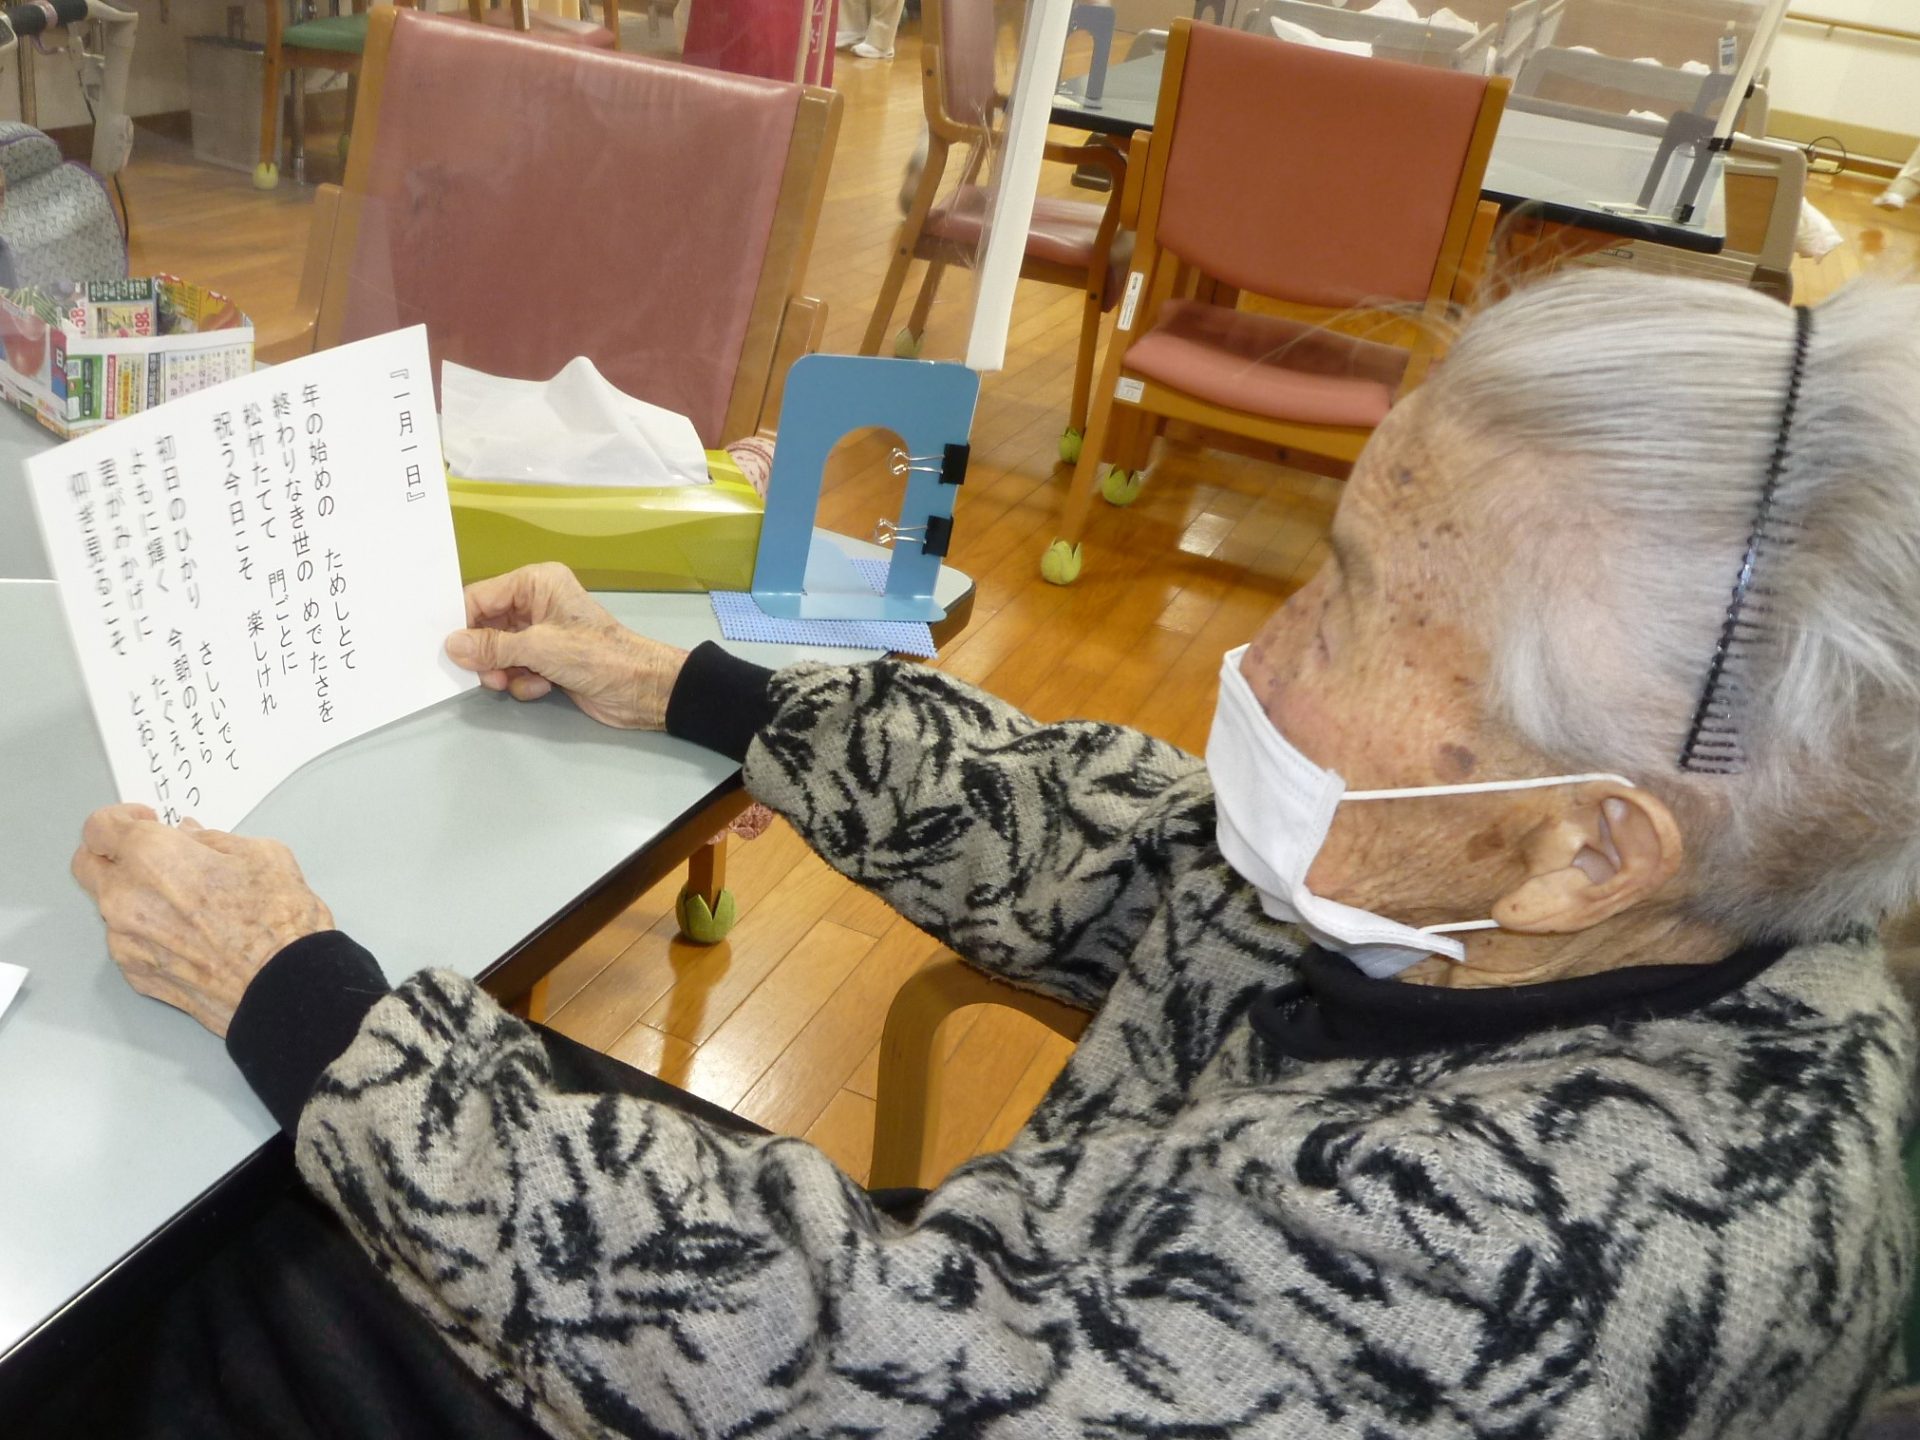 『一月一日』
年の始めの　ためしとて
終わりなき世の　めでたさを
松竹たてて　門ごとに
祝う今日こそ　楽しけれ
初日のひかり　さしいでて
よもに輝く　今朝のそら
君がみかげに　たぐえつつ
仰ぎ見るこそ　とおとけれ
498